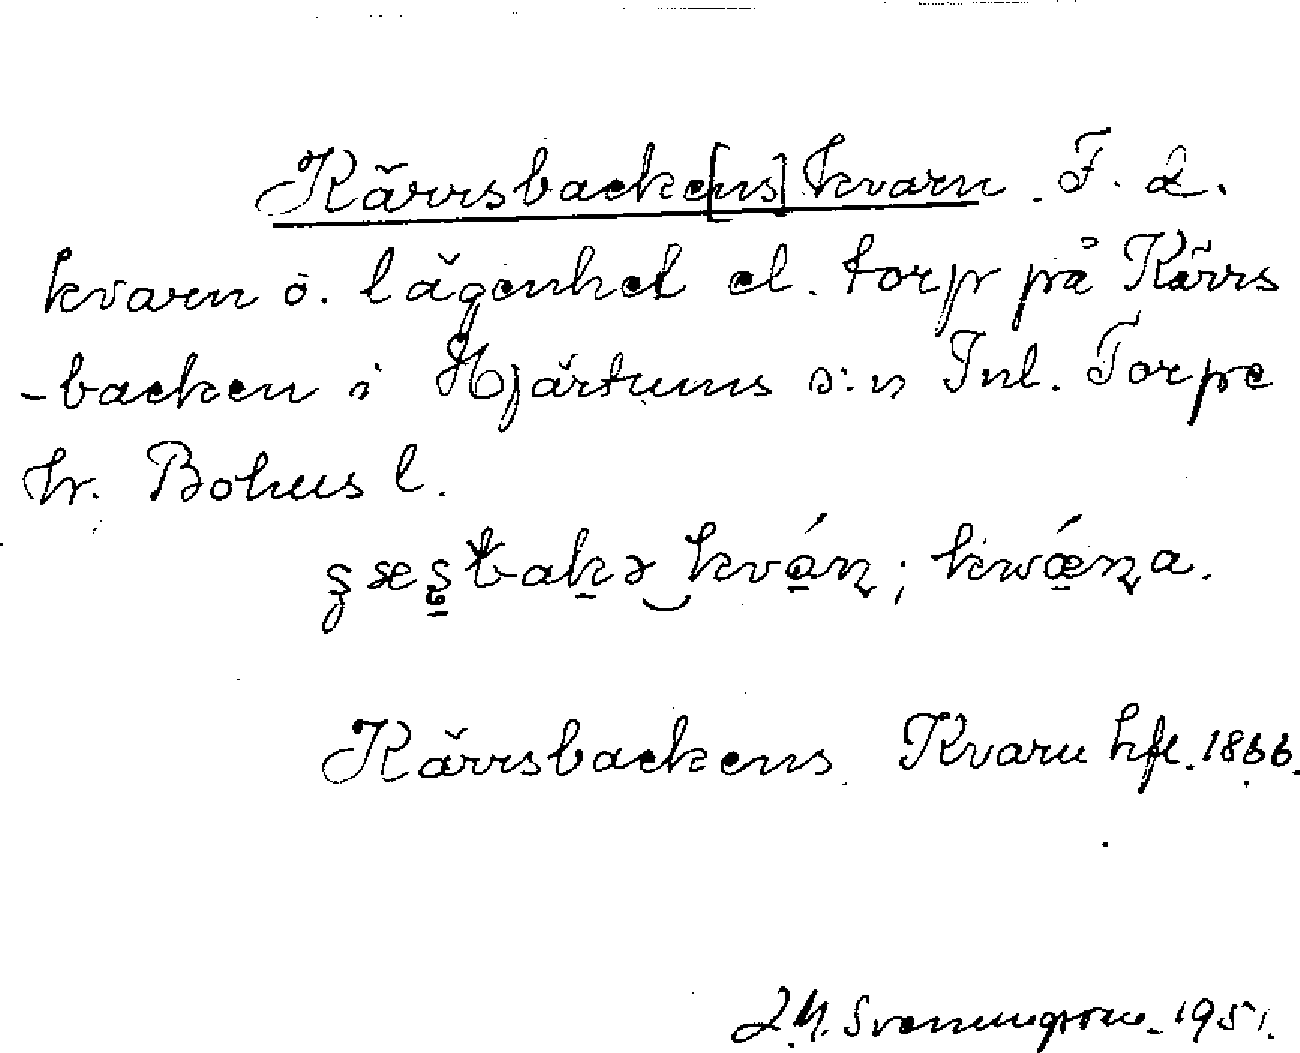 Kärrsbacke[ns] kvarn. F. d.
kvarn o. lägenhet el. torp på Kärrs
-backen i Hjärtums s:n Inl. Torpe
hr. Bohus l.
kván; kwǽṇa.
Kärrsbackens Kvarn hfl. 1866.
1951.